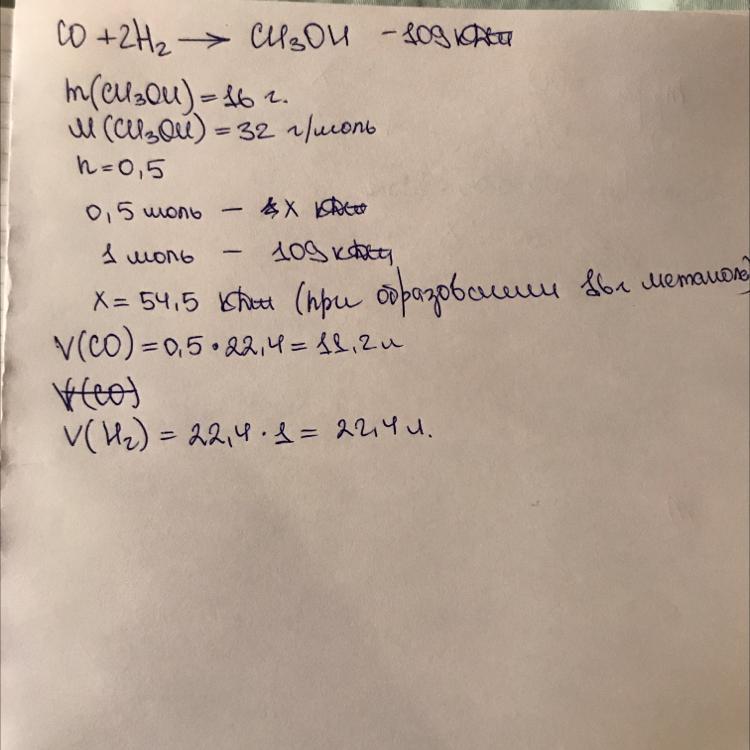 CO + 2H₂ → CH₃OH - 109 кДж
m(CH₃OH) = 16 г.
M(CH₃OH) = 32 г/моль
n = 0,5
0,5 моль - x кДж
1 моль - 109 кДж
x = 54,5 кДж (при образовании 16г метанола)
V(CO) = 0,5 • 22,4 = 11,2 л
V(CO)
V(H₂) = 22,4 · 1 = 22,4 л.